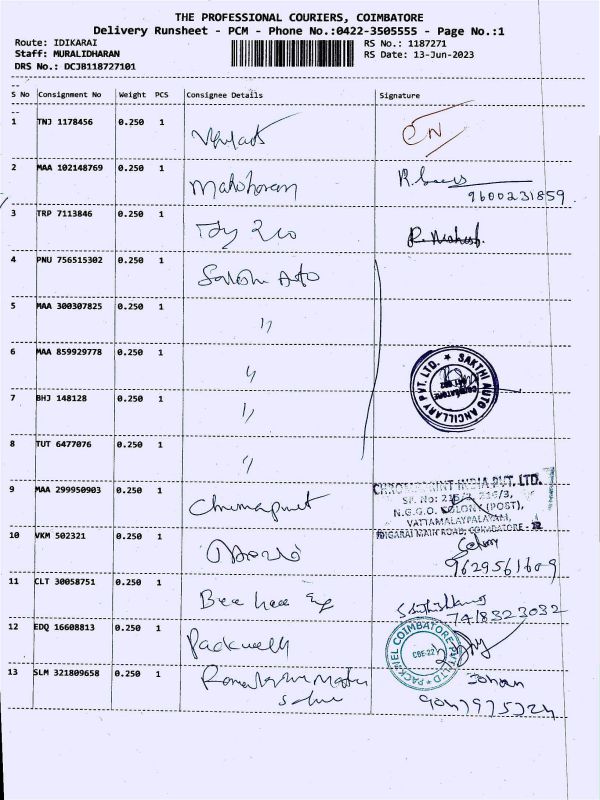 THE PROFESSIONAL COURIERS, COIMBATORE
Delivery Runsheet - PCM - Phone No.:0422-3505555 - Page No.:1
Route: IDIKARAI RS No.: 1187271
Staff: MURALIDHARAN RS Date: 13-Jun-2023
DRS No.: DCJB118727101
S No Consignment No Weight PCS Consignee Details Signature
1 TNJ 1178456 0.250 1
2 MAA 102148769 0.250 1 Manoharan R.
9600231859
3 TRP 7113846 0.250 1
4 PNU 756515302 0.250 1 Sakthi Auto
5 MAA 300307825 0.250 1 "
6 MAA 859929778 0.250 1 "
SAKTHI AUTO ANCILLARY PVT. LTD. ★
COIMBATORE
7 BHJ 148128 0.250 1 "
8 TUT 6477076 0.250 1 "
9 MAA 299950903 0.250 1 Chromaprint
CHROMAPRINT INDIA PVT. LTD.
SF. No: 215/2, 216/3,
N.G.G.O. COLONY (POST),
VATTAMALAYPALAYAM,
IDIGARAI MAIN ROAD, COIMBATORE -
10 VKM 502321 0.250 1 Apollo
9629561609
11 CLT 30058751 0.250 1
7418323032
12 EDQ 16608813 0.250 1 Packwell
COIMBATORE PVT LTD
CBE-22
13 SLM 321809658 0.250 1